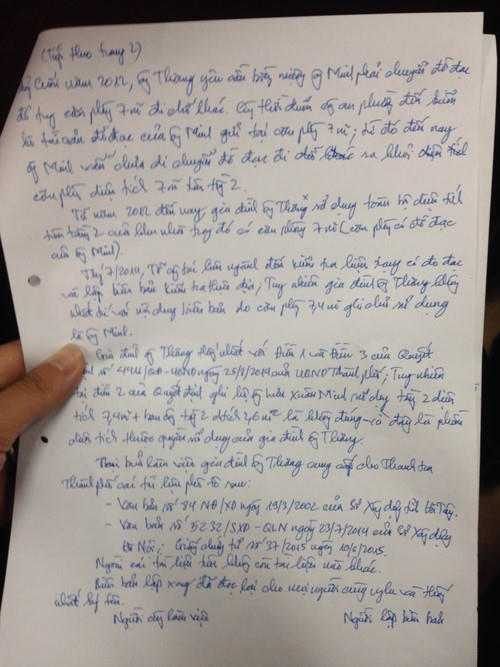 (Tiếp theo trang 2)
Cuối năm 2012, ông Thắng yêu cầu bằng miệng ông Minh phải chuyển đồ đạc
để tại căn phòng 7m² đi chỗ khác. Cùng thời điểm công an phường đến kiểm
kê tài sản đồ đạc của ông Minh gửi tại căn phòng 7m²; từ đó đến nay
ông Minh vẫn chưa di chuyển đồ đạc đi chỗ khác ra khỏi diện tích
căn phòng diện tích 7m² tầng 2.
Từ năm 2012 đến nay, gia đình ông Thắng sử dụng toàn bộ diện tích
tầng 2 của khu nhà trong đó có căn phòng 7m² (căn phòng có đồ đạc
của ông Minh).
Th7/2014, Tổ công tác liên ngành đến kiểm tra hiện trạng có đo đạc
và lập biên bản kiểm tra thửa đất; Tuy nhiên gia đình ông Thắng không
nhất trí với nội dung biên bản do căn phòng 7,4m² ghi chủ sử dụng
là ông Minh.
Gia đình ông Thắng thống nhất với Điều 1 và Điều 3 của Quyết
định số QĐ-UBND ngày 25/8/2014 của UBND Thành phố; Tuy nhiên
tại điều 2 của Quyết định ghi là ông Lưu Xuân Minh sử dụng tầng 2 diện
tích 7,4m² + ban công tầng 2 d.tích 2,6m² là không đúng - vì đây là phần
diện tích thuộc quyền sử dụng của gia đình ông Thắng.
Tại buổi làm việc gia đình ông Thắng cung cấp cho Thanh tra
Thành phố các tài liệu phô tô sau:
- Văn bản số 84 NĐ/XD ngày 19/3/2002 của Sở Xây dựng tỉnh Hà Tây.
- Văn bản số 5232/SXD-QLN ngày 23/7/2014 của Sở Xây dựng
Hà Nội; Giấy chứng tử số 37/2015 ngày 10/6/2015.
Ngoài các tài liệu trên không còn tài liệu nào khác.
Biên bản lập xong đã đọc lại cho mọi người cùng nghe và thống
nhất ký tên.
Người cùng làm việc Người lập biên bản